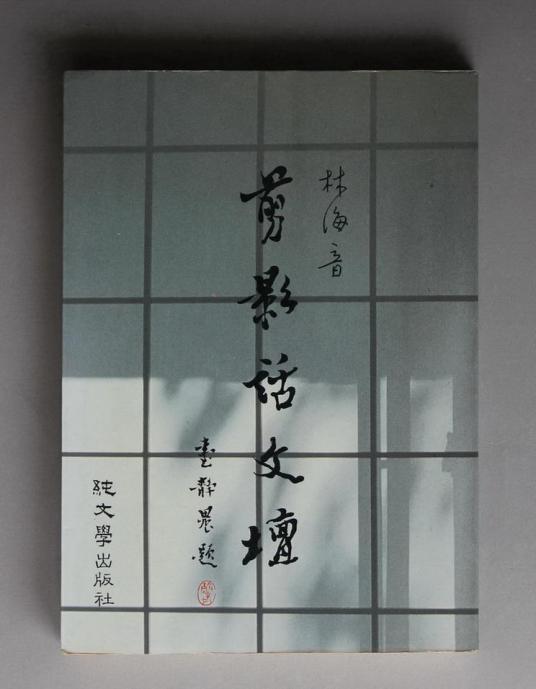 林海音
剪影話文壇
臺靜農題
純文學出版社